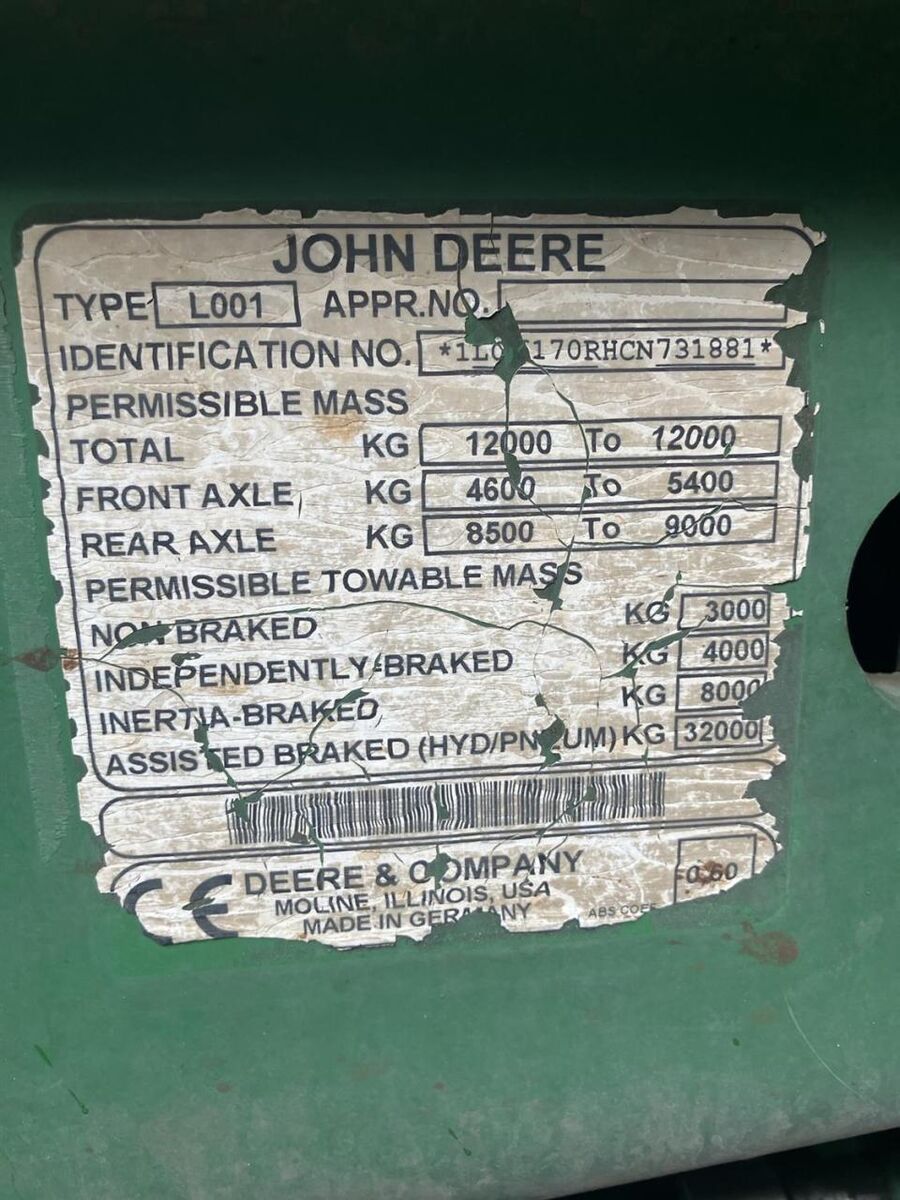 JOHN DEERE
TYPE L001 APPR.NO.
IDENTIFICATION NO.
PERMISSIBLE MASS
TOTAL KG 12000 To 12000
FRONT AXLE KG 4600 To 5400
REAR AXLE KG 8500 To 9000
PERMISSIBLE TOWABLE MASS
NON BRAKED KG 3000
INDEPENDENTLY-BRAKED KG 4000
INERTIA-BRAKED KG 8000
ASSISTED BRAKED (HYD/PNEUM) KG 32000
CE DEERE & COMPANY 0,60
MOLINE, ILLINOIS, USA
MADE IN GERMANY ABS COEF